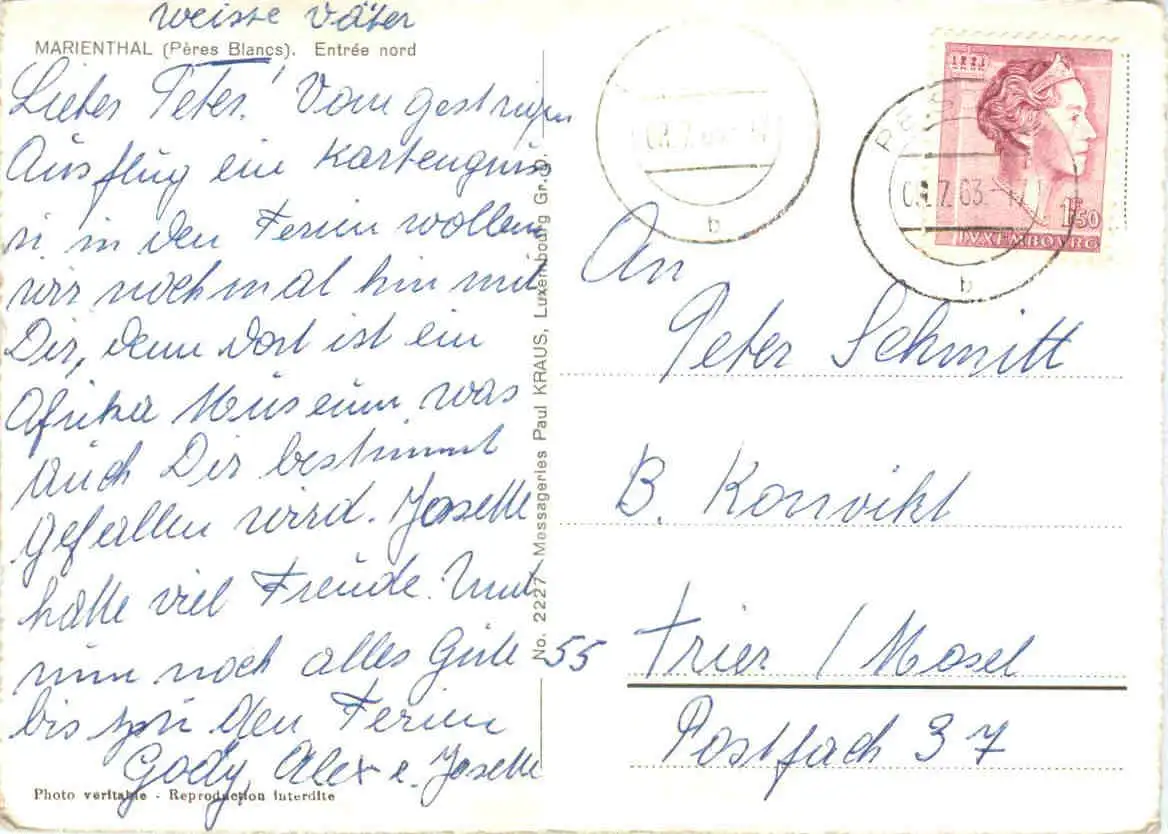 weisse Väter
MARIENTHAL (Pères Blancs). Entrée nord
Lieber Peter! Vom gestrigen
Ausflug ein Kartengruss
in den Ferien wollen
wir nochmal hin mit
Dir, denn dort ist ein
Afrika Museum was
auch Dir bestimmt
gefallen wird. Josette
hatte viel Freude. Und
nun noch alles Gute
bis zu den Ferien
Gody, Alex e. Josette
Photo veritable - Reproduction interdite
No. 2227 - Messageries Paul KRAUS, Luxembourg Gr. D.
7.63
b
b
1F50
LUXEMBOURG
An
Peter Schmitt
B. Konvikt
55 Trier / Mosel
Postfach 37